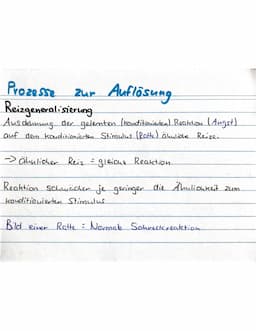 Prozesse zur Auflösung
Reizgeneralisierung
Ausdehnung der gelernten (konditionierten) Reaktion (Angst)
auf dem konditionierten Stimulus (Ratte) ähnliche Reize.
-> Ähnlicher Reiz = gleiche Reaktion
Reaktion schwächer je geringer die Ähnlichkeit zum
konditionierten Stimulus
Bild einer Ratte = Normale Schreckreaktion